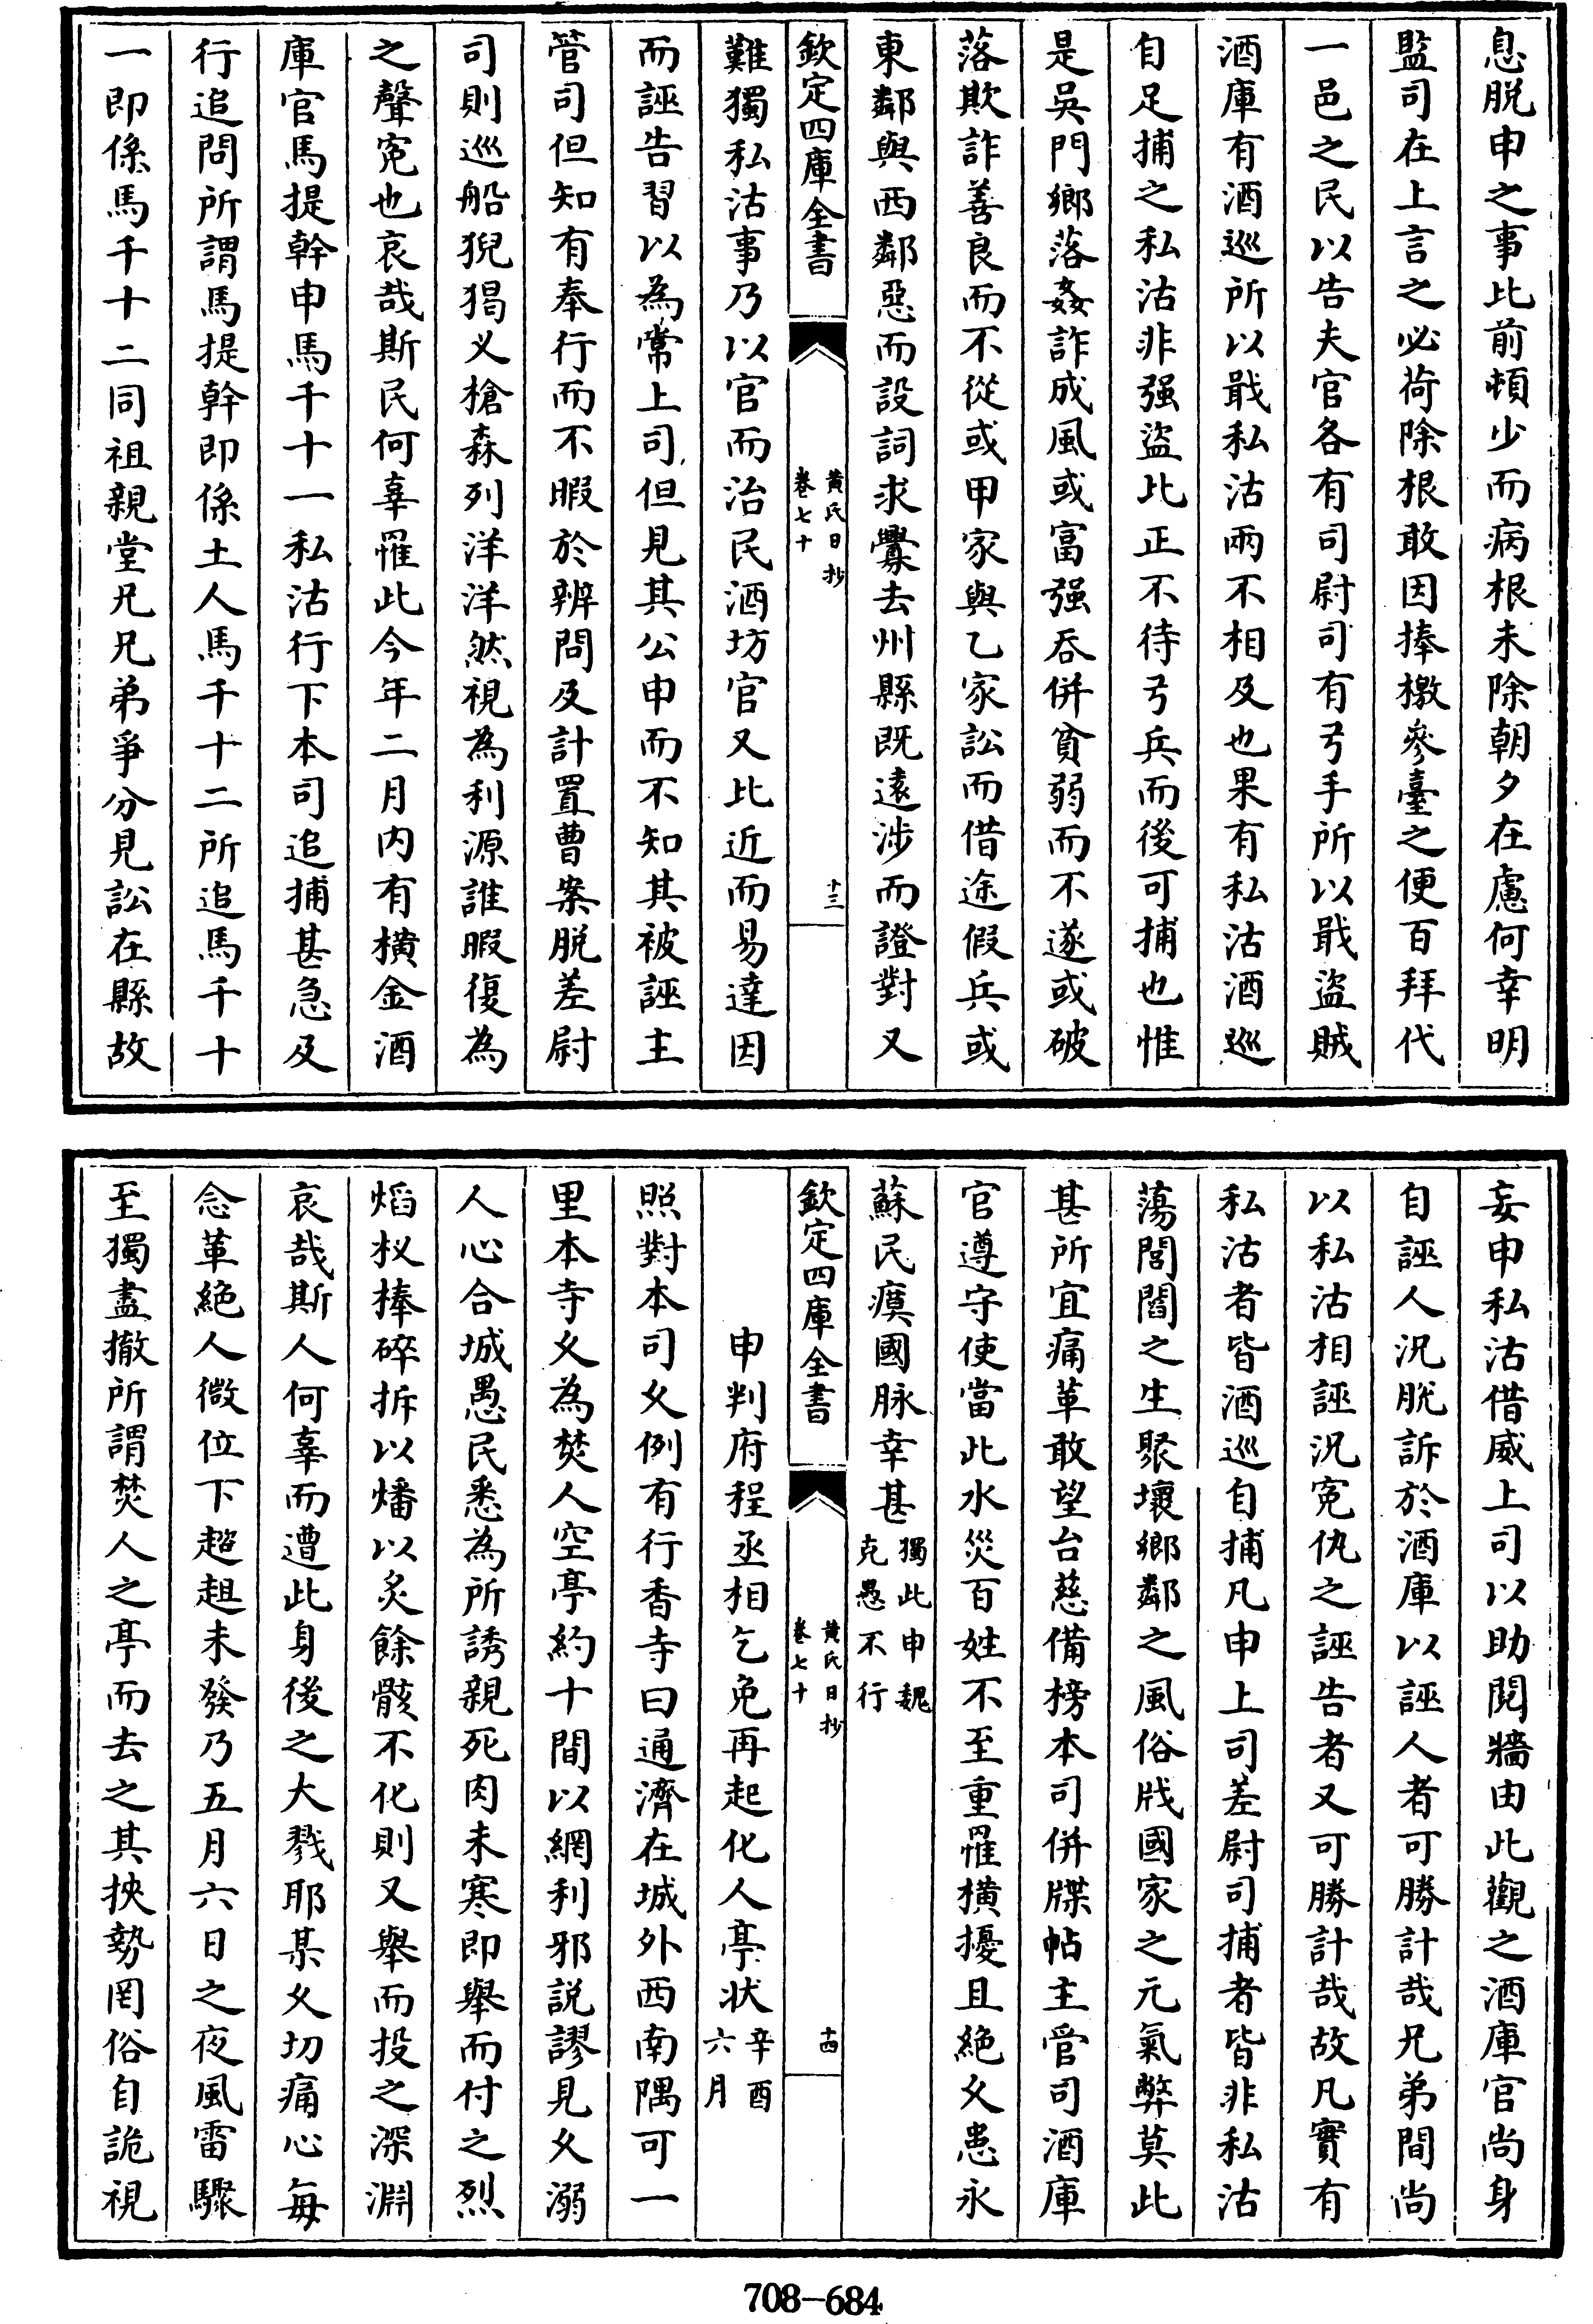 息脱申之事比前頓少而病根未除朝夕在慮何幸明
監司在上言之必荷除根敢因捧檄參臺之便百拜代
一邑之民以告夫官各有司尉司有弓手所以戢盜賊
酒庫有酒巡所以戢私沽兩不相及也果有私沽酒巡
自足捕之私沽非强盜比正不待弓兵而後可捕也惟
是吳門鄉落姦詐成風或富强吞併貧弱而不遂或破
落欺詐善良而不從或甲家與乙家訟而借途假兵或
東鄰與西鄰惡而設詞求釁去州縣既遠涉而證對又
欽定四庫全書
黃氏日抄
卷七十
十三
難獨私沽事乃以官而治民酒坊官又比近而易達因
而誣告習以為常上司但見其公申而不知其被誣主
管司但知有奉行而不暇於辨問及計置曹案脱差尉
司則巡船猊猲义槍森列洋洋然視為利源誰暇復為
之聲寃也哀哉斯民何辜罹此今年二月内有橫金酒
庫官馬提幹申馬千十一私沽行下本司追捕甚急及
行追問所謂馬提幹即係土人馬千十二所追馬千十
一即係馬千十二同祖親堂兄兄弟爭分見訟在縣故
妄申私沽借威上司以助鬩牆由此觀之酒庫官尚身
自誣人況脱訴於酒庫以誣人者可勝計哉兄弟間尚
以私沽相誣況寃仇之誣告者又可勝計哉故凡實有
私沽者皆酒巡自捕凡申上司差尉司捕者皆非私沽
蕩閭閻之生聚壞鄉鄰之風俗戕國家之元氣弊莫此
甚所宜痛革敢望台慈備榜本司併牒帖主管司酒庫
官遵守使當此水災百姓不至重罹橫擾且絶久患永
蘇民瘼國脉幸甚獨此申魏
克愚不行
欽定四庫全書
黃氏日抄
卷七十
十四
申判府程丞相乞免再起化人亭狀辛酉
六月
照對本司久例有行香寺曰通濟在城外西南隅可一
里本寺久為焚人空亭約十間以網利邪説謬見久溺
人心合城愚民悉為所誘親死肉未寒即舉而付之烈
熖杈棒碎拆以燔以炙餘骸不化則又舉而投之深淵
哀哉斯人何辜而遭此身後之大戮耶某久切痛心每
念革絶人微位下趑趄未發乃五月六日之夜風雷驟
至獨盡撤所謂焚人之亭而去之其挾勢罔俗自詭視
708-684